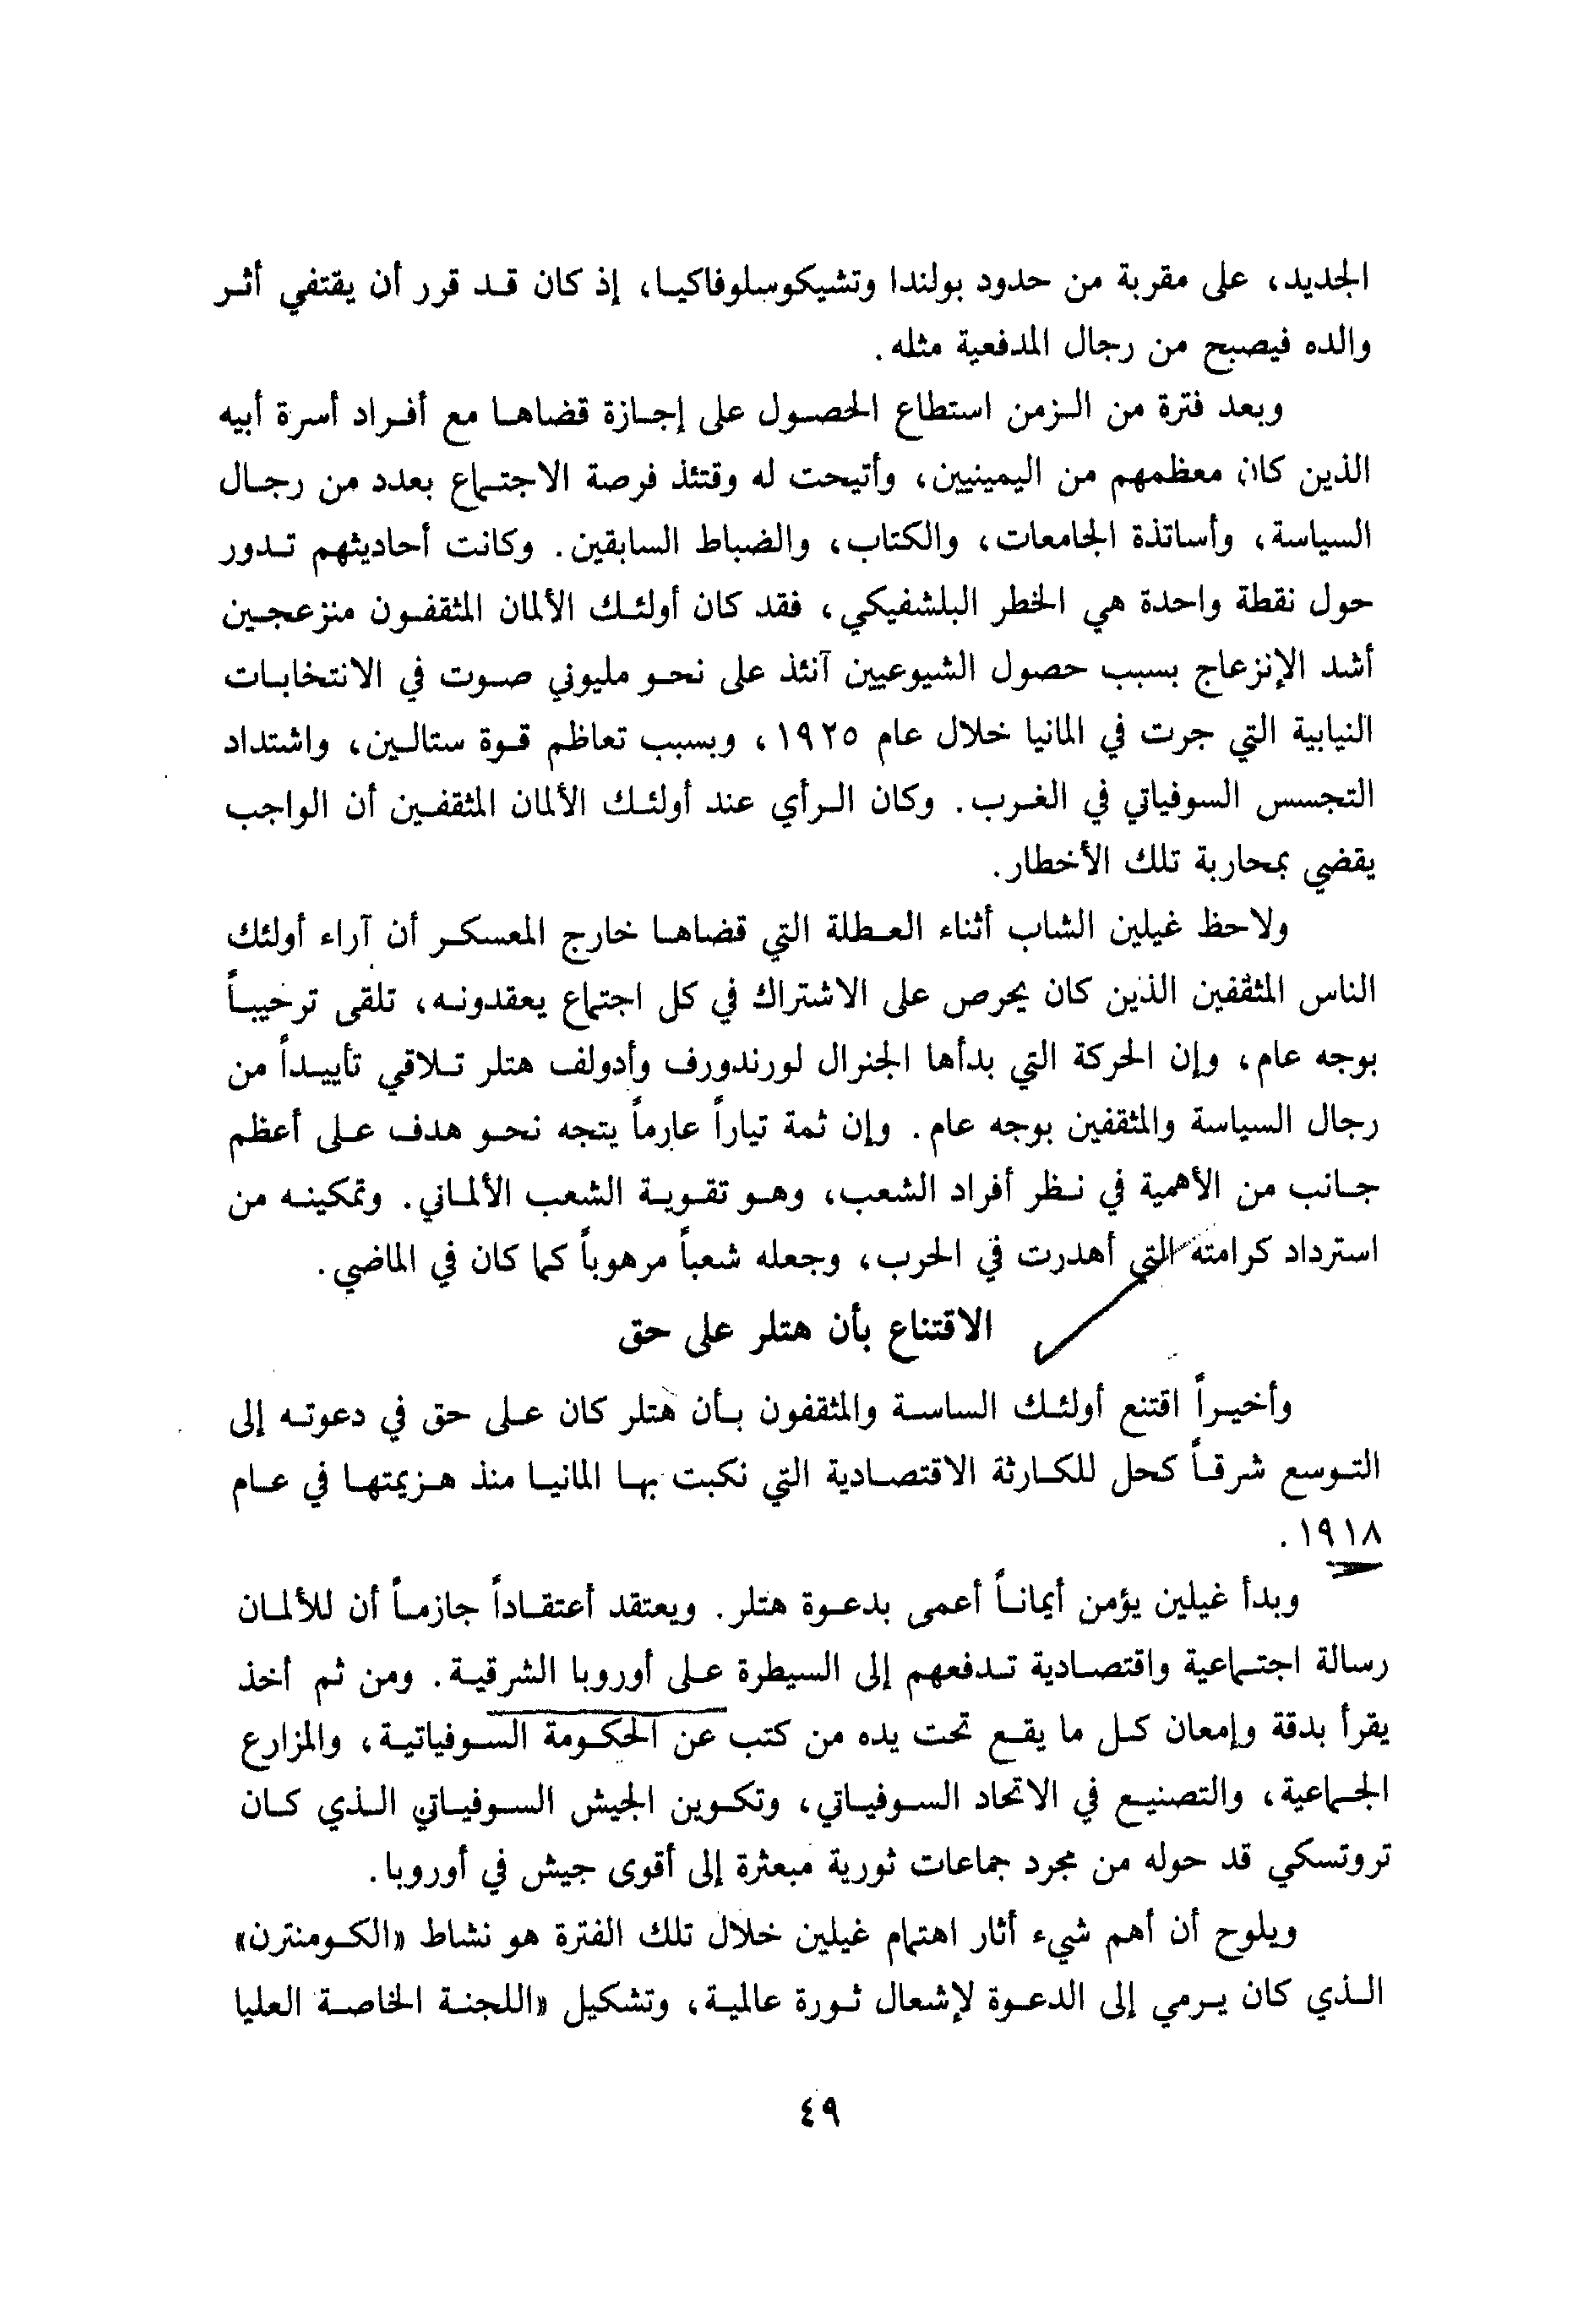 الجديد، على مقربة من حدود بولندا وتشيكوسلوفاكيا، إذ كان قد قرر أن يقتفي أثر
والده فيصبح من رجال المدفعية مثله.
وبعد فترة من الزمن استطاع الحصول على إجازة قضاها مع أفراد أسرة أبيه
الذين كان معظمهم من اليمينيين، وأتيحت له وقتئذ فرصة الاجتماع بعدد من رجال
السياسة، وأساتذة الجامعات، والكتاب، والضباط السابقين. وكانت أحاديثهم تدور
حول نقطة واحدة هي الخطر البلشفيكي، فقد كان أولئك الألمان المثقفون منزعجين
أشد الإنزعاج بسبب حصول الشيوعيين آنئذ على نحو مليوني صوت في الانتخابات
النيابية التي جرت في المانيا خلال عام ١٩٢٥، وبسبب تعاظم قوة ستالين، واشتداد
التجسس السوفياتي في الغرب. وكان الرأي عند أولئك الألمان المثقفين أن الواجب
يقضي بمحاربة تلك الأخطار.
ولاحظ غيلين الشاب أثناء العطلة التي قضاها خارج المعسكر أن آراء أولئك
الناس المثقفين الذين كان يحرص على الاشتراك في كل اجتماع يعقدونه، تلقى ترحيباً
بوجه عام، وإن الحركة التي بدأها الجنرال لورندورف وأدولف هتلر تلاقي تأييداً من
رجال السياسة والمثقفين بوجه عام. وإن ثمة تياراً عارماً يتجه نحو هدف على أعظم
جانب من الأهمية في نظر أفراد الشعب، وهو تقوية الشعب الألماني. وتمكينه من
استرداد كرامته التي أهدرت في الحرب، وجعله شعباً مرهوباً كما كان في الماضي.
الاقتناع بأن هتلر على حق
وأخيراً اقتنع أولئك الساسة والمثقفون بأن هتلر كان على حق في دعوته إلى
التوسع شرقاً كحل للكارثة الاقتصادية التي نكبت بها المانيا منذ هزيمتها في عام
١٩١٨.
وبدأ غيلين يؤمن أيماناً أعمى بدعوة هتلر. ويعتقد أعتقاداً جازماً أن للألمان
رسالة اجتماعية واقتصادية تدفعهم إلى السيطرة على أوروبا الشرقية. ومن ثم أخذ
يقرأ بدقة وإمعان كل ما يقع تحت يده من كتب عن الحكومة السوفياتية، والمزارع
الجماعية، والتصنيع في الاتحاد السوفياتي، وتكوين الجيش السوفياتي الذي كان
تروتسكي قد حوله من مجرد جماعات ثورية مبعثرة إلى أقوى جيش في أوروبا.
ويلوح أن أهم شيء أثار اهتمام غيلين خلال تلك الفترة هو نشاط «الكومنترن»
الذي كان يرمي إلى الدعوة لإشعال ثورة عالمية، وتشكيل «اللجنة الخاصة العليا
٤٩